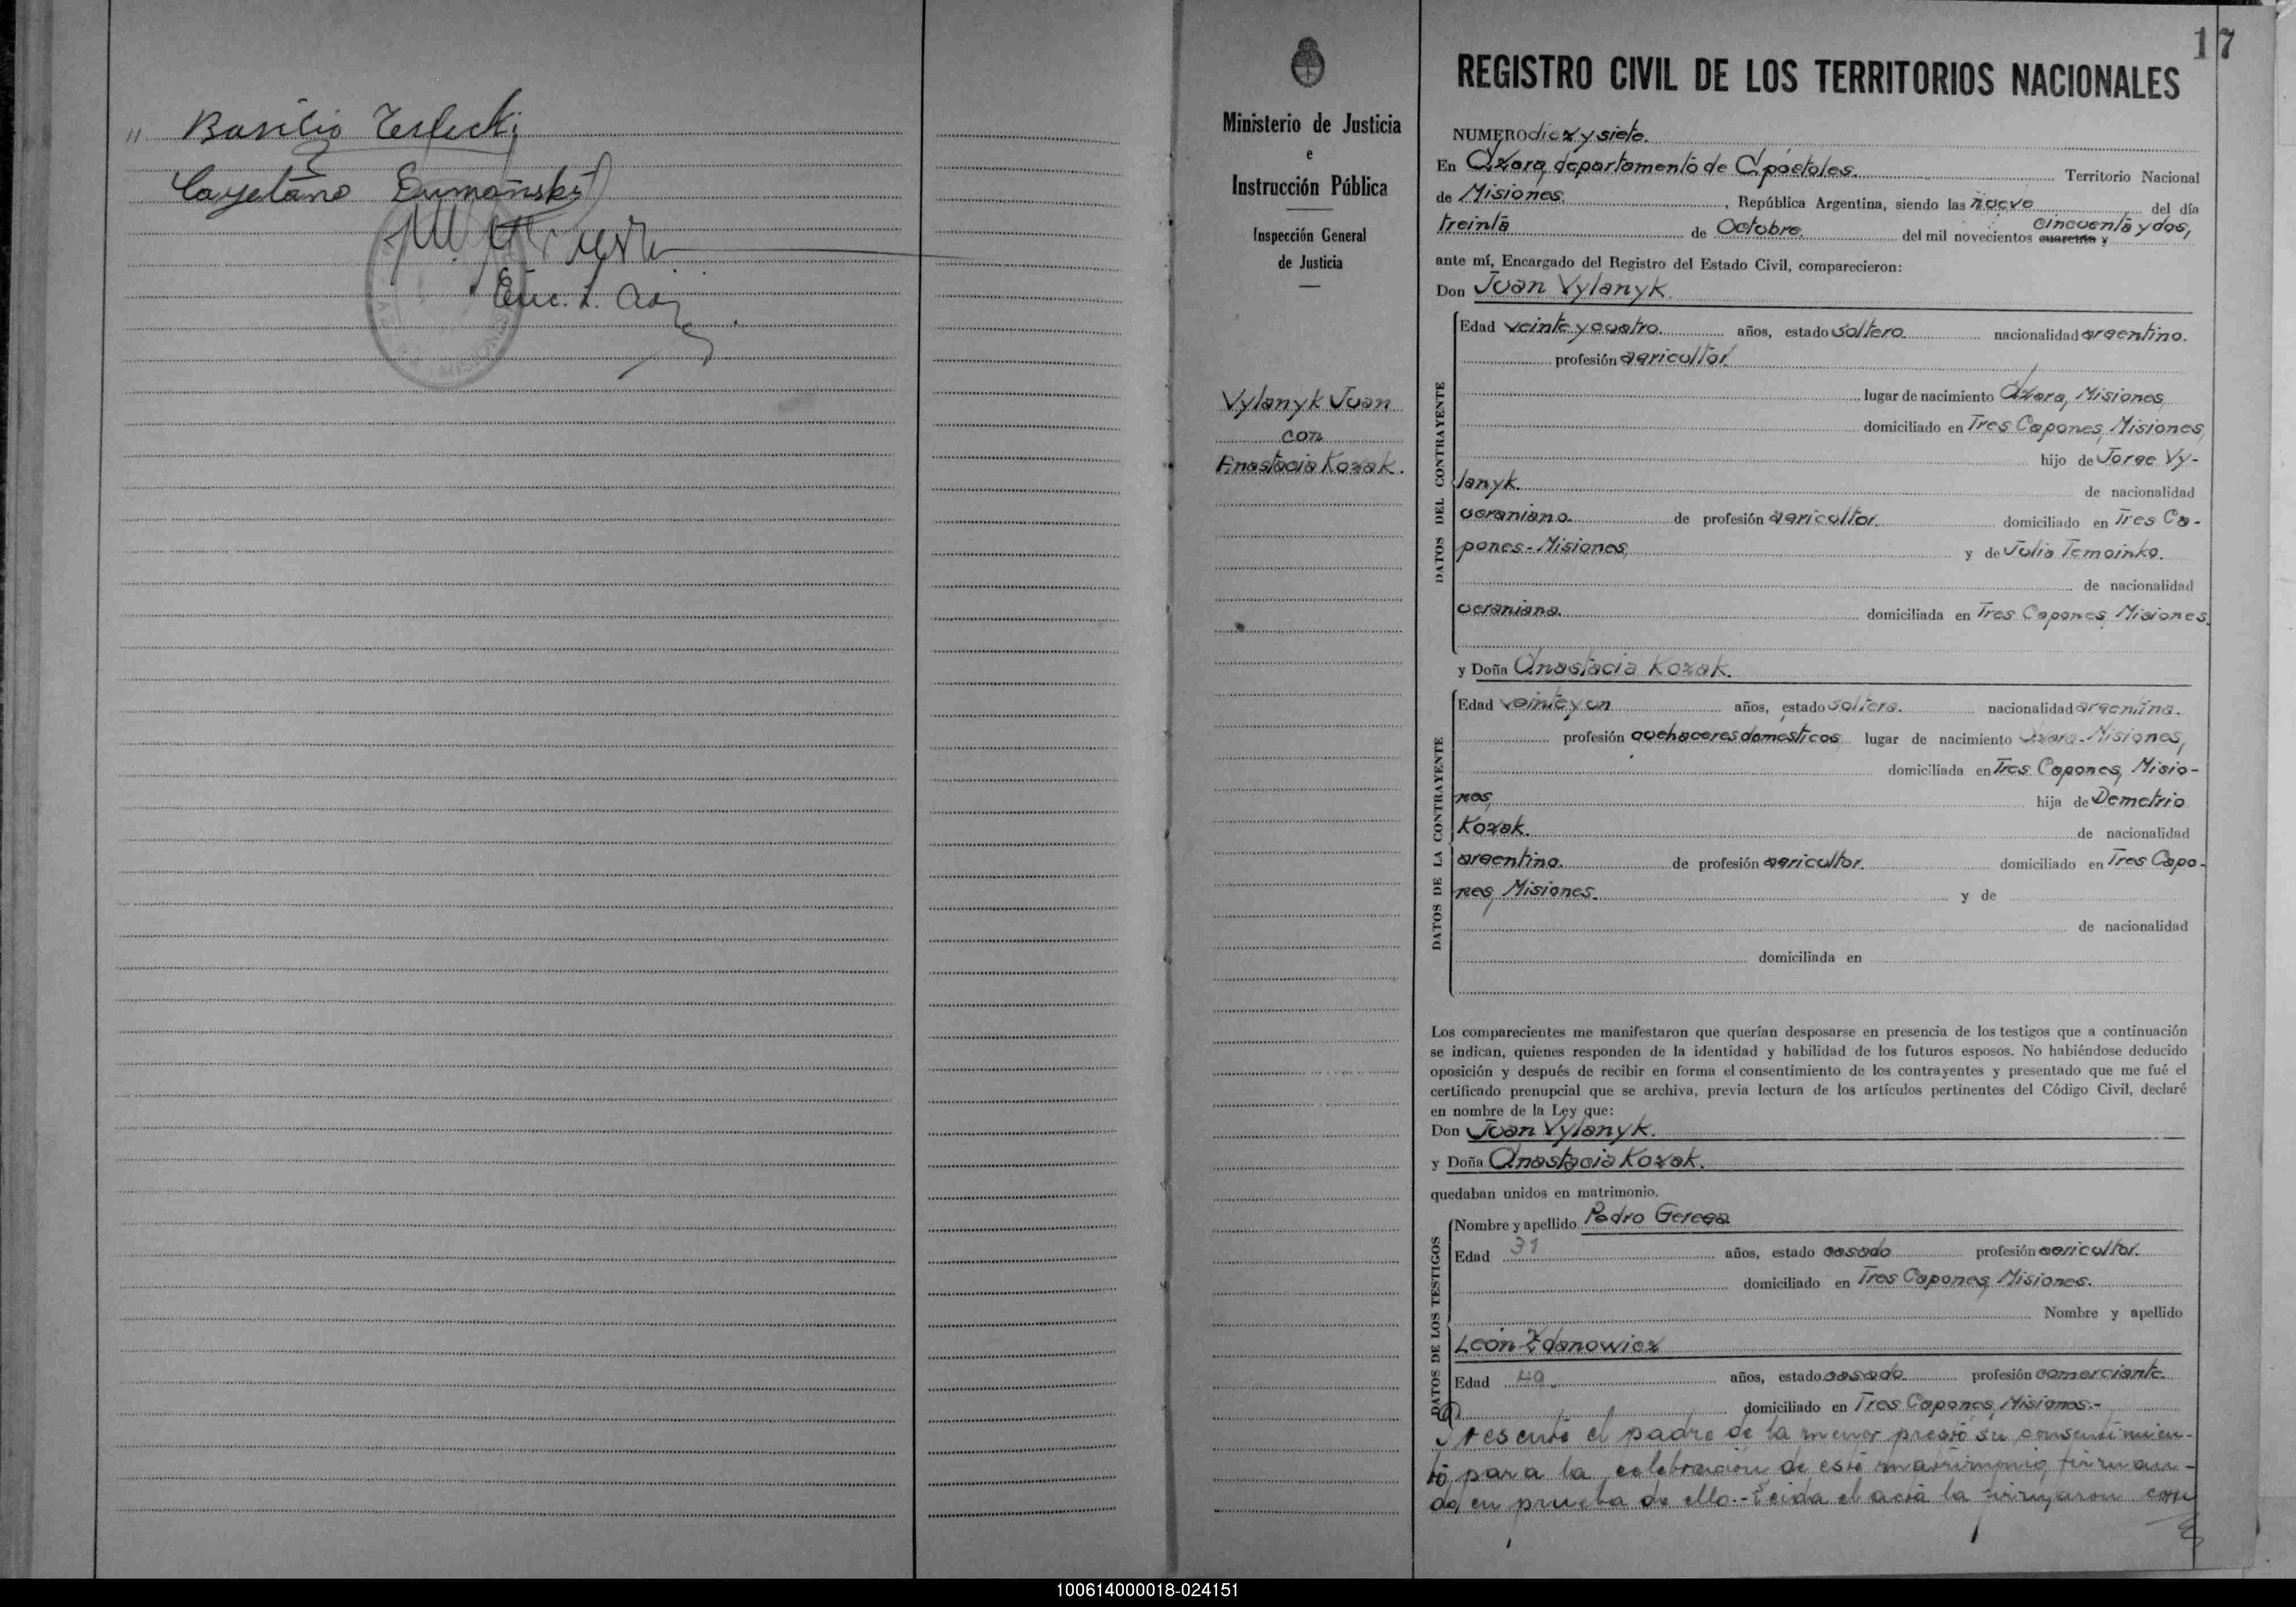 " Basilio Teslecki
Cayetano Dumañski
Enc. L. Adj.
17
Ministerio de Justicia
e
Instrucción Pública
Inspección General
de Justicia
Vylanyk Juan
con
Anastacia Kozak.
REGISTRO CIVIL DE LOS TERRITORIOS NACIONALES
NUMERO diez y siete.
En Azara, departamento de Apóstoles. Territorio Nacional
de Misiones, República Argentina, siendo las nueve del día
treinta de Octubre. del mil novecientos cuarenta y cincuenta y dos,
ante mí, Encargado del Registro del Estado Civil, comparecieron:
Don Juan Vylanyk
DATOS DEL CONTRAYENTE
Edad veinte y cuatro. años, estado soltero nacionalidad argentino.
profesión agricultor.
lugar de nacimiento Azara, Misiones,
domiciliado en Tres Capones, Misiones,
hijo de Jorge Vy-
lanyk. de nacionalidad
ucraniano. de profesión agricultor. domiciliado en Tres Ca-
pones-Misiones, y de Julia Temoinko.
de nacionalidad
ucraniana. domiciliada en Tres Capones, Misiones.
y Doña Anastacia Kozak.
DATOS DE LA CONTRAYENTE
Edad veinte y un años, estado soltera. nacionalidad argentina.
profesión quehaceres domesticos lugar de nacimiento Azara-Misiones,
domiciliada en Tres Capones, Misio-
nes, hija de Demetrio
Kozak. de nacionalidad
argentino. de profesión agricultor. domiciliado en Tres Capo-
nes, Misiones. y de
de nacionalidad
domiciliada en
Los comparecientes me manifestaron que querían desposarse en presencia de los testigos que a continuación
se indican, quienes responden de la identidad y habilidad de los futuros esposos. No habiéndose deducido
oposición y después de recibir en forma el consentimiento de los contrayentes y presentado que me fué el
certificado prenupcial que se archiva, previa lectura de los artículos pertinentes del Código Civil, declaré
en nombre de la Ley que:
Don Juan Vylanyk.
y Doña Anastacia Kozak.
quedaban unidos en matrimonio.
DATOS DE LOS TESTIGOS
Nombre y apellido Pedro Gerega
Edad 31 años, estado casado profesión agricultor.
domiciliado en Tres Capones, Misiones.
Nombre y apellido
León Zdanowicz
Edad 40. años, estado casado profesión comerciante.
domiciliado en Tres Capones, Misiones.-
Presente el padre de la menor prestó su consentimien-
to para la celebración de este matrimonio, firman-
do, en prueba de ello.- Leida el acta la firmaron con
100614000018-024151